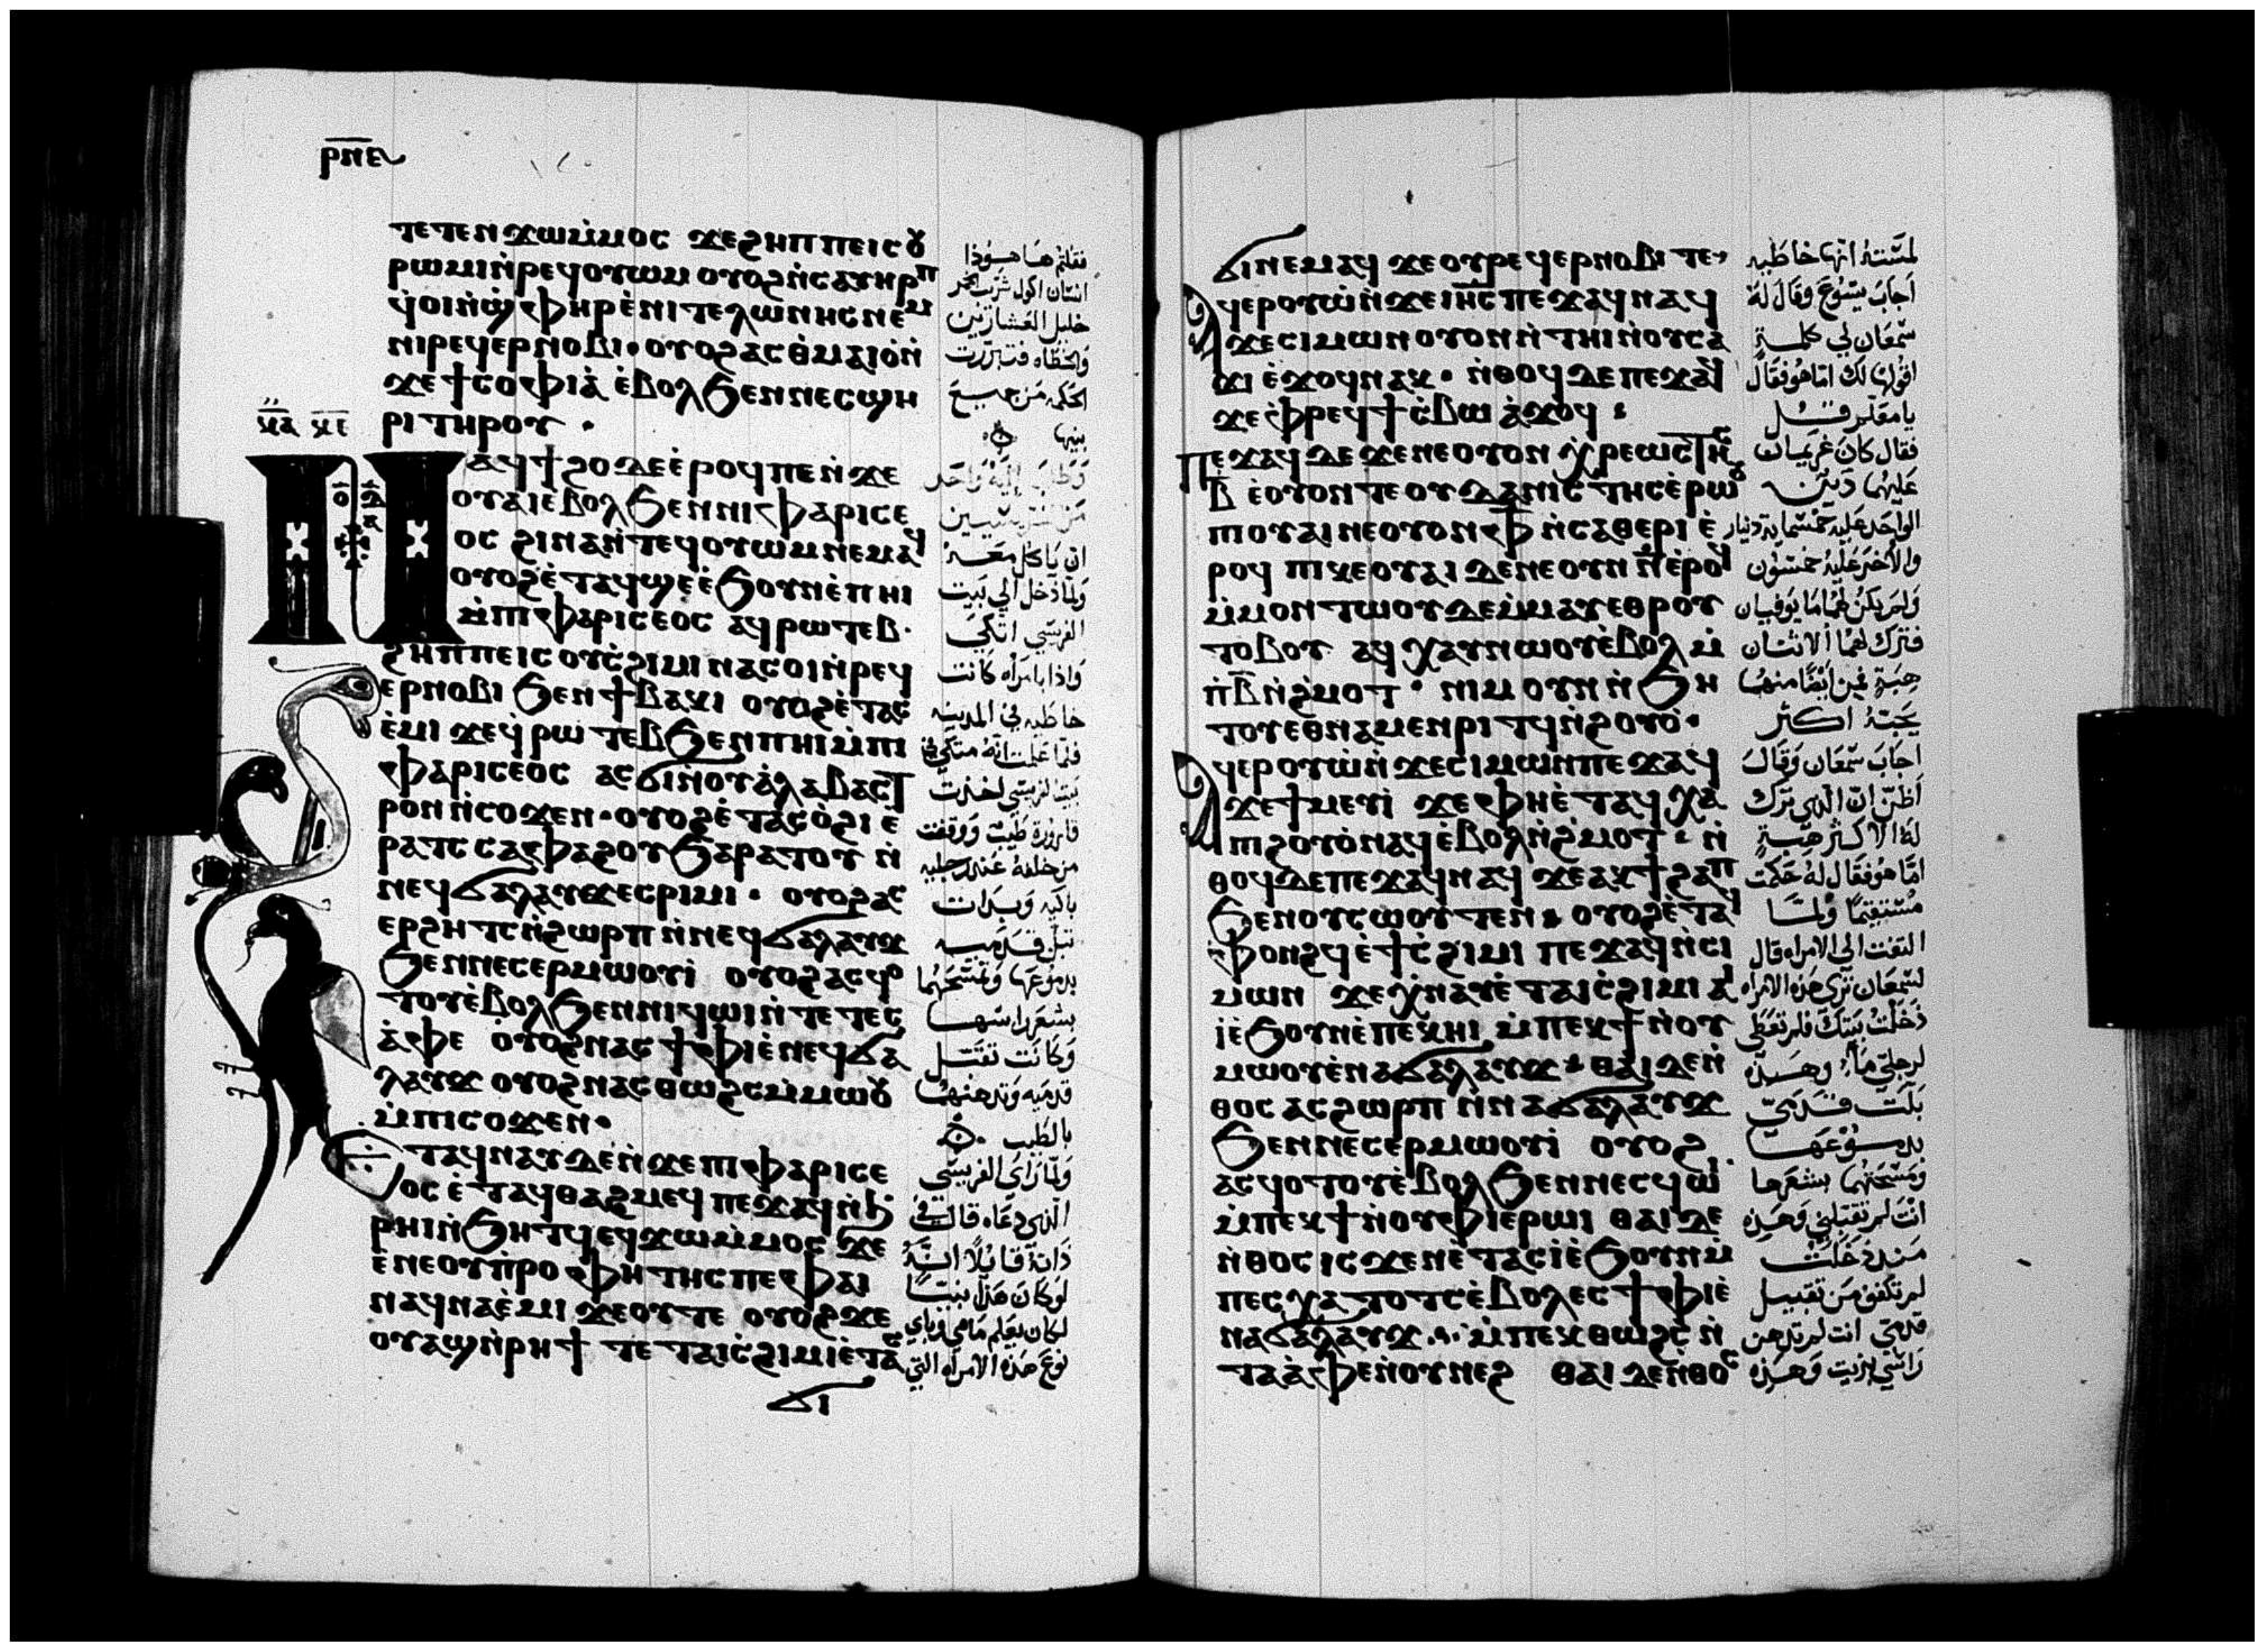 ⲣⲛⲉ
ⲧⲉⲧⲉⲛϫⲱⲙ̇ⲙⲟⲥ ϫⲉϩⲏⲡⲡⲉⲓⲥⲟⲩ
ⲣⲱⲙⲓⲛ̇ⲣⲉϥⲟⲩⲱⲙ ⲟⲩⲟϩⲛ̇ⲥⲁⲩⲏⲣⲡ
ϥ̇ⲟⲓⲛ̇ϣⲫⲏⲣⲉ̇ⲛⲓⲧⲉⲗⲱⲛⲏⲥⲛⲉⲙ
ⲛⲓⲣⲉϥⲉⲣⲛⲟⲃⲓ· ⲟⲩⲟϩⲁⲥⲑ̇ⲙⲁⲓⲟ̇ⲛ̇
ϫⲉϯⲥⲟⲫⲓⲁ̇ ⲉ̇ⲃⲟⲗϧⲉⲛⲛⲉⲥϣⲏ
ⲣⲓⲧⲏⲣⲟⲩ ·
ⲛⲁϥϯϩⲟⲇⲉⲉ̇ⲣⲟϥⲡⲉⲛ̇ϫⲉ
ⲟⲩⲁⲓⲉⲃⲟⲗϧⲉⲛⲛⲓⲫⲁⲣⲓⲥⲉ
ⲟⲥ ϩⲓⲛⲁⲛ̇ⲧⲉϥⲟⲩⲱⲙⲛⲉⲙⲁϥ
ⲟⲩⲟϩⲉ̇ⲧⲁϥϣⲉⲉ̇ϧⲟⲩⲛⲉ̇ⲡⲏⲓ
ⲙ̇ⲡⲓⲫⲁⲣⲓⲥⲉⲟⲥ ⲁϥⲣⲱⲧⲉⲃ·
ϩⲏⲡⲡⲉⲓⲥ ⲟⲩⲥ̇ϩⲓⲙⲓ ⲛⲁⲥⲟⲓⲛ̇ⲣⲉϥ
ⲉⲣⲛⲟⲃⲓ ϧⲉⲛϯⲃⲁⲕⲓ ⲟⲩⲟϩⲉ̇ⲧⲁⲥ
ⲉ̇ⲙⲓ ϫⲉϥ̇ⲣⲱⲧⲉⲃϧⲉⲛⲡⲏⲓⲙ̇ⲡⲓ
ⲫⲁⲣⲓⲥⲉⲟⲥ ⲁⲥϭⲓⲛⲟⲩⲁ̇ⲗⲁⲃⲁⲥⲧ
ⲣⲟⲛⲛ̇ⲥⲟϫⲉⲛ· ⲟⲩⲟϩⲉ̇ⲧⲁⲥⲟ̇ϩⲓ ⲉ
ⲣⲁⲧⲥ ⲥⲁⲫⲁϩⲟⲩϧⲁⲣⲁⲧⲟⲩ ⲛ̇
ⲛⲉϥϭⲁⲗⲁⲩϫⲉⲥⲣⲓⲙⲓ · ⲟⲩⲟϩⲁⲥ
ⲉⲣϩⲏⲧⲥⲛ̇ϩⲱⲣⲡ ⲛ̇ⲛⲉϥϭⲁⲗⲁⲩϫ
ϧⲉⲛⲛⲉⲥⲉⲣⲙⲱⲟⲩⲓ̇ ⲟⲩⲟϩⲁⲥϥⲟ
ⲧⲟⲩⲉ̇ⲃⲟⲗϧⲉⲛⲛⲓϥⲱⲓⲛ̇ⲧⲉⲧⲉⲥ
ⲁ̇ⲫⲉ ⲟⲩⲟϩⲛⲁⲥϯⲫⲓⲉ̇ⲛⲉϥϭⲁ
ⲗⲁⲩϫ ⲟⲩⲟϩⲛⲁⲥⲑⲱϩⲥⲙ̇ⲙⲱⲟⲩ
ⲙ̇ⲡⲓⲥⲟϫⲉⲛ·
ⲉⲧⲁϥⲛⲁⲩⲇⲉⲛ̇ϫⲉⲡⲓⲫⲁⲣⲓⲥⲉ
ⲟⲥ ⲉ̇ⲧⲁϥⲑⲁϩⲙⲉϥ ⲡⲉϫⲁϥⲛ̇ϧ
ⲣⲏⲓⲛ̇ϧⲏⲧϥⲉϥϫⲱⲙ̇ⲙⲟⲥ ϫⲉ
ⲉ̇ⲛⲉⲟⲩⲡⲣⲟⲫⲏⲧⲏⲥⲡⲉⲫⲁⲓ
ⲛⲁϥⲛⲁⲉ̇ⲙⲓ ϫⲉⲟⲩⲧⲉ ⲟⲩⲟϩϫⲉ
ⲟⲩⲁϣⲛ̇ⲣⲏϯ ⲧⲉ ⲧⲁⲓⲥ̇ϩⲓⲙⲓⲉ̇ⲧⲁⲥ
ϭⲓ
فقلتم هَا هــوُذا
انسَان اكول شرّيب الخمر
خليل العَشارين
وَالخطَاه فتبرّرت
الحكمه مَن جميعَ
بنيهَا
وَطلبَ اليَّه وَاحَد
مَن الفريسّيين
ان يَاكل معَــه
وَلمّا دَخل الي بَيت
الفريسّي اتكيَ
وَاذا بامرَاه كَانت
خاطيه في المدينه
فلمّا علمت انّهُ متكي في
بَيت الفريسّي اخذت
قارورة طيّب وَوقفت
من خلفهُ عند رجليه
باكيَه وَبدَات
تبلّ قدَميــه
بدموعَها وَتمسَحَهُما
بشعَر راسَهــا
وَكَانت تقبّل
قدميَه وَتدهنهُما
بالطيب
وَلمّا رَاي الفريسّي
الّذي دعَاه قال في
ذَاتهُ قايلاً
لوَكان هَذا نبيّــاً
لكان يعَلم مَا هي وَباي
نوعَ هَذه الامرَاه التي
ϭⲓⲛⲉⲙⲁϥ ϫⲉⲟⲩⲣⲉϥⲉⲣⲛⲟⲃⲓ ⲧⲉ
ⲁϥⲉⲣⲟⲩⲱ̇ⲛ̇ϫⲉⲓⲏⲥ ⲡⲉϫⲁϥⲛⲁϥ
ϫⲉⲥⲓⲙⲱⲛ ⲟⲩⲟⲛⲛ̇ⲧⲏⲓⲛ̇ⲟⲩⲥⲁ
ϫⲓ ⲉ̇ϫⲟϥⲛⲁⲕ · ⲛ̇ⲑⲟϥⲇⲉⲡⲉϫⲁϥ
ϫⲉⲫ̇ⲣⲉϥϯⲥ̇ⲃⲱ ⲁ̇ϫⲟϥ ⁑
ⲡⲉϫⲁϥⲇⲉ ϫⲉⲛⲉⲟⲩⲟⲛ ⲭ̇ⲣⲉⲱⲥⲧⲏⲥ
ⲃ̅ ⲉ̇ⲟⲩⲟⲛⲧⲉ ⲟⲩⲇⲁⲛⲓⲥⲧⲏⲥⲉ̇ⲣⲱⲟⲩ
ⲡⲓⲟⲩⲁⲓ ⲛⲉⲟⲩⲟⲛ ⲫ̅ ⲛ̇ⲥⲁⲑⲉⲣⲓ ⲉ̇
ⲣⲟϥ ⲡⲓⲕⲉⲟⲩⲁⲓ ⲇⲉⲛⲉⲟⲩⲛ ⲛ̅ⲉ̇ⲣⲟϥ
ⲙ̇ⲙⲟⲛⲧⲱⲟⲩⲇⲉⲙ̇ⲙⲁⲩⲉⲑⲣⲟⲩ
ⲧⲟⲃⲟⲩ ⲁϥⲭⲁⲩⲛⲱⲟⲩⲉ̇ⲃⲟⲗ ⲙ̇
ⲡ̇ⲃ̅ ⲛ̇ϩ̇ⲙⲟⲧ · ⲛⲓⲙ ⲟⲩⲛ ⲛ̇ϧⲏ
ⲧⲟⲩⲉⲑⲛⲁⲙⲉⲛⲣⲓⲧϥⲛ̇ϩⲟⲩⲟ̇·
ⲁϥⲉⲣⲟⲩⲱ̇ⲛ̇ϫⲉⲥⲓⲙⲱⲛⲡⲉϫⲁϥ
ϫⲉϯⲙⲉⲩⲓ̇ ϫⲉⲫⲏⲉ̇ⲧⲁϥⲭⲁ
ⲡⲓϩⲟⲩⲟ̇ⲛⲁϥⲉ̇ⲃⲟⲗⲛ̇ϩ̇ⲙⲟⲧ ⁑ ⲛ̇
ⲑⲟϥⲇⲉⲡⲉϫⲁϥⲛⲁϥ ϫⲉⲁⲕϯϩⲁⲡ
ϧⲉⲛⲟⲩⲥⲱⲟⲩⲧⲉⲛ ⁑ ⲟⲩⲟϩⲉ̇ⲧⲁϥ
ⲫⲟⲛϩϥⲉ̇ϯⲥ̇ϩⲓⲙⲓ ⲡⲉϫⲁϥⲛ̇ⲥⲓ
ⲙⲱⲛ ϫⲉⲭ̇ⲛⲁⲩⲉ̇ⲧⲁⲓⲥ̇ϩⲓⲙⲓ ⲁⲓ
ⲓ̇ⲉ̇ϧⲟⲩⲛⲉ̇ⲡⲉⲕⲏⲓ ⲙ̇ⲡⲉⲕϯⲛ̇ⲟⲩ
ⲙⲱⲟⲩⲉ̇ⲛⲁϭⲁⲗⲁⲩϫ ⁑ ⲑⲁⲓⲇⲉⲛ̇
ⲑⲟⲥ ⲁⲥϩⲱⲣⲡ ⲛ̇ⲛⲁϭⲁⲗⲁⲩϫ
ϧⲉⲛⲛⲉⲥⲉⲣⲙⲱⲟⲩⲓ̇ ⲟⲩⲟϩ
ⲁⲥϥⲟⲧⲟⲩⲉ̇ⲃⲟⲗϧⲉⲛⲛⲉⲥϥⲱⲓ
ⲙ̇ⲡⲉⲕϯⲛ̇ⲟⲩⲫⲓⲉⲣⲱⲓ ⲑⲁⲓⲇⲉ
ⲛ̇ⲑⲟⲥ ⲓⲥϫⲉⲛⲉ̇ⲧⲁⲥⲓ̇ⲉ̇ϧⲟⲩⲛⲙ̇
ⲡⲉⲥⲭⲁⲧⲟⲧⲥⲉ̇ⲃⲟⲗⲉⲥϯⲫⲓⲉ̇
ⲛⲁϭⲁⲗⲁⲩϫ ⁘ ⲙ̇ⲡⲉⲕⲑⲱϩⲥ ⲛ̇
ⲧⲁⲁ̇ⲫⲉⲛ̇ⲟⲩⲛⲉϩ ⲑⲁⲓⲇⲉⲛ̇ⲑⲟⲥ
لمسَتهُ انّها خاطيّه
اجَابَ يسُوعَ وَقالَ لهُ
سّمعَان لي كلمــة
اقولهَا لك امّا هُو فقالَ
يا معَلّم قــل
فقال كانَ غريمَان
عَليهُما دَيــن
الواحَد عليه خمسّماية دينار
وَالاخرَ عَليهُ خمسُون
وَلم يكنُ لهُما مَا يوَفيان
فترَك لهُما الاثنان
هِبَةٍ فمن ايّهَُا منهُما
يحَبّهُ اكثر
اجَابَ سّمعَان وَقالَ
اظنّ انّ الّذي ترَك
لهُ الاكثر هبَــةٍ
امّا هُو فقال لهُ حَكمت
مُستقيمًا وَلمّــا
التفت الي الامراه قال
لسّمعَان ترَي هَذه الامراه
دَخلتُ بَيتكَ فلم تعَطي
لرجليّ مَاءً وَهَــذه
بَلّت قــدَميّ
بدمــوُعَهــا
وَمسَحَتهُما بشعَرهَا
انتَ لم تقبّلني وَهَذه
مَنــذ دَخلــتُ
لم تكففُ مَن تقبيــل
قدميّ انتَ لم تدهن
رَاسّي بزيت وَهــذه